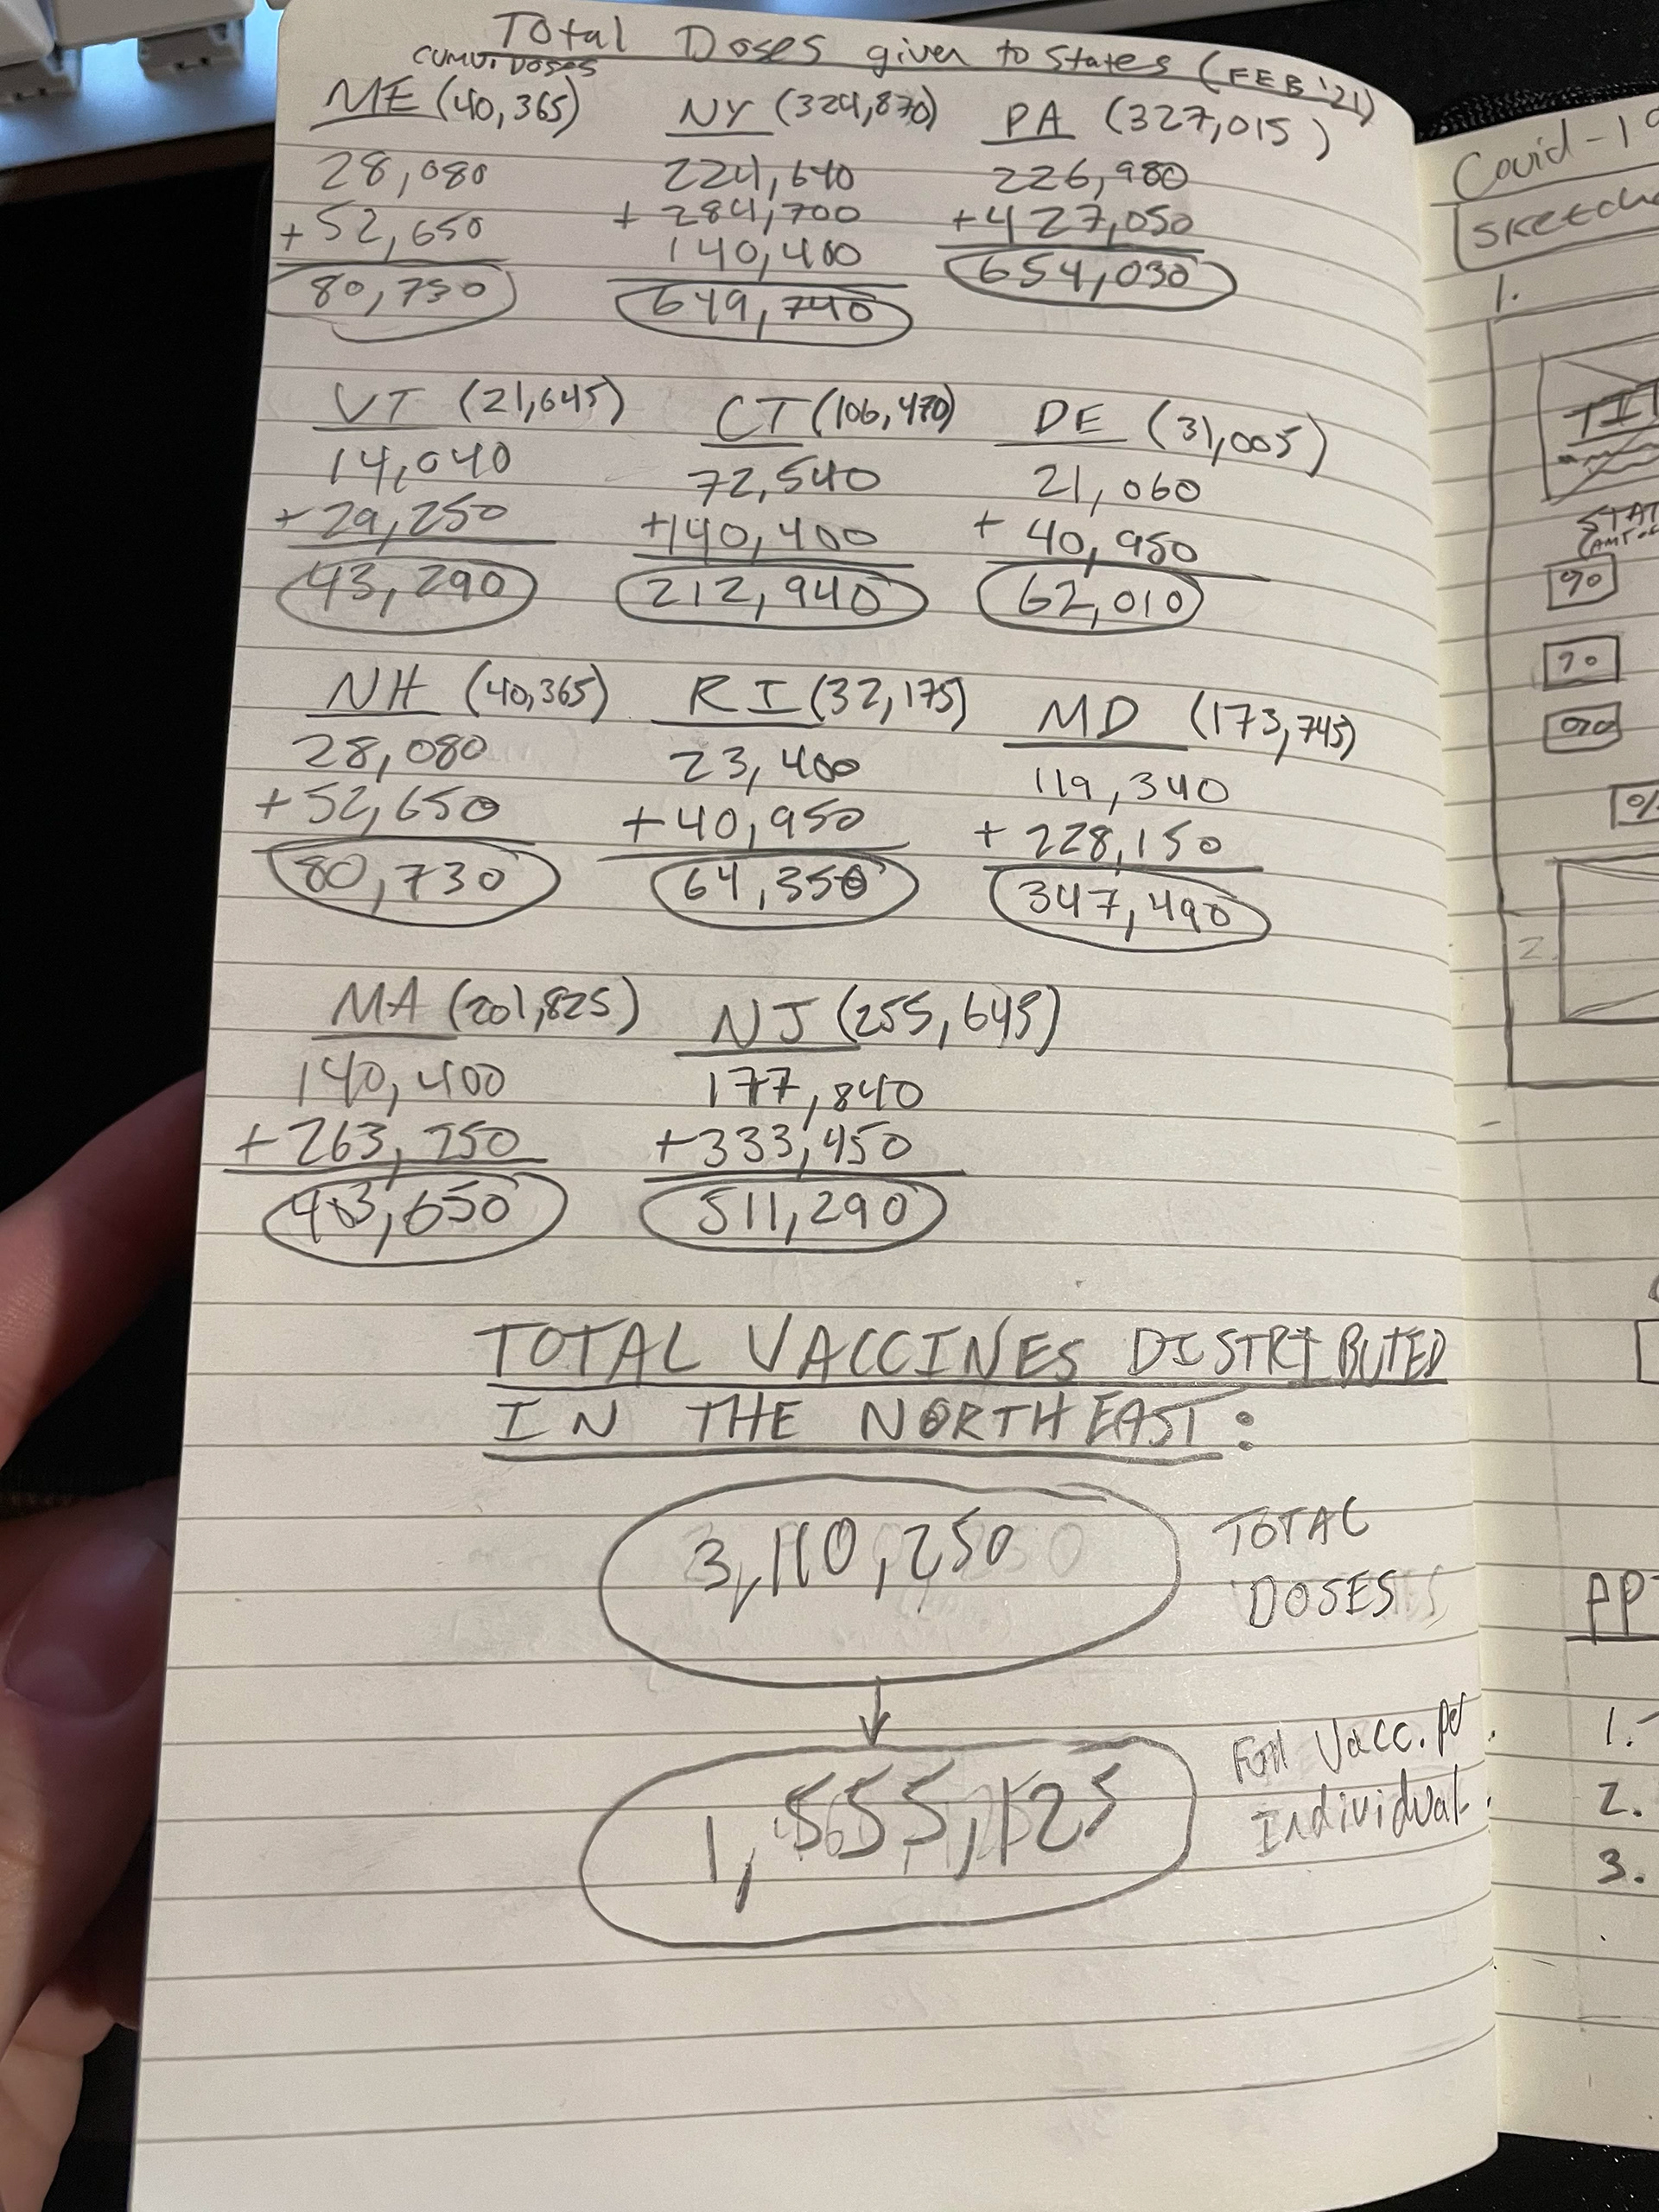 Total Doses given to States (FEB '21)
CUMU. DOSES
ME (40,365)
28,080
+ 52,650
80,730
NY (324,870)
224,640
+ 284,700
140,400
649,740
PA (327,015)
226,980
+ 427,050
654,030
VT (21,645)
14,040
+ 29,250
43,290
CT (106,470)
72,540
+ 140,400
212,940
DE (31,005)
21,060
+ 40,950
62,010
NH (40,365)
28,080
+ 52,650
80,730
RI (32,175)
23,400
+ 40,950
64,350
MD (173,745)
119,340
+ 228,150
347,490
MA (201,825)
140,400
+ 263,250
403,650
NJ (255,645)
177,840
+ 333,450
511,290
TOTAL VACCINES DISTRIBUTED
IN THE NORTHEAST:
3,110,250
TOTAL
DOSES
1,555,125
Full Vacc. per
Individual.
Covid-19
1.
2.
1.
2.
3.